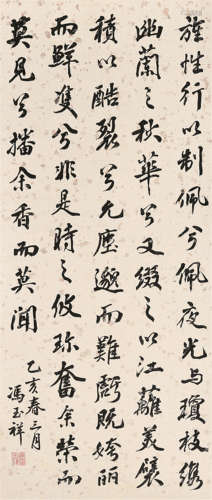 旌性行以制佩兮佩夜光與瓊枝纗
幽蘭之秋華兮又綴之以江蘺美襞
積以酷裂兮允塵邈而難虧既姱麗
而鮮雙兮非是時之攸珍奮余榮而
莫見兮播余香而莫聞
乙亥春三月
馮玉祥